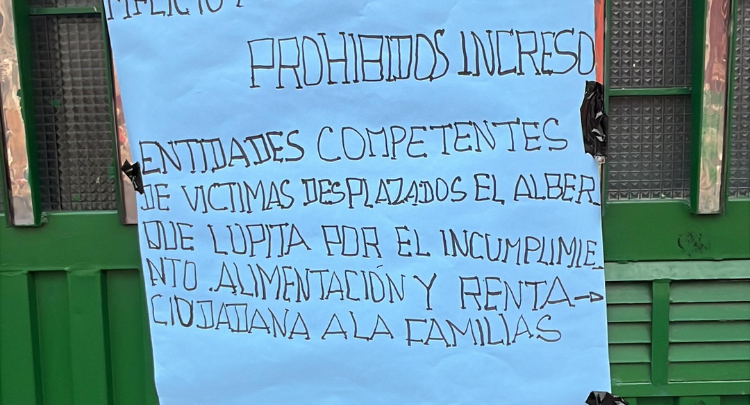 PROHIBIDOS INCRESO
ENTIDADES COMPETENTES
DE VICTIMAS DESPLAZADOS EL ALBER_
QUE LUPITA POR EL INCUMPLIMIE_
NTO . ALIMENTACIÓN Y RENTA→
CIUDADANA A LA FAMILIAS